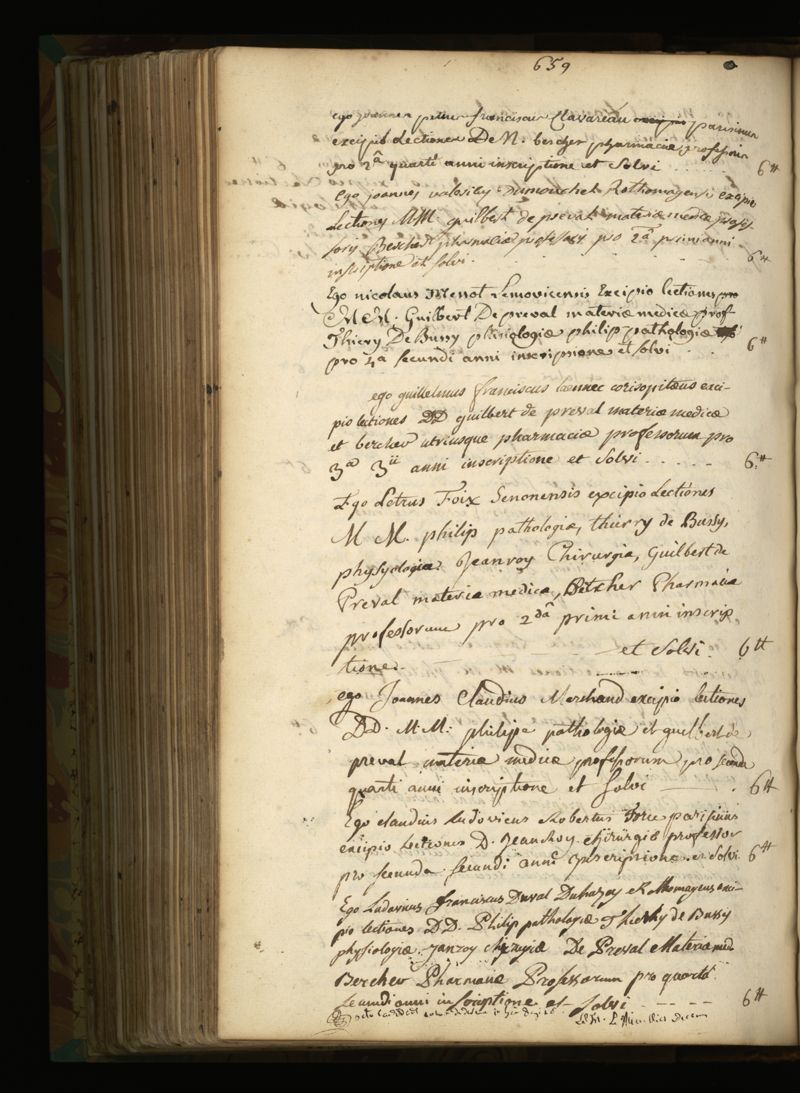 659
ego joannes petrus franciscus Clavareau parisinus
excipio lectiones D. N. bercher pharmaciæ professoris
pro 2ª quarti anni inscriptione et Solvi . . . . . 6 ₶
Ego joannes Dumouchel Rothomagensis excipio
Lectiones MM. guilbert de preval materiæ medicæ profes
soris Bercher pharmaciæ professoris pro 2ª primi anni
inscriptione et solvi. 6 ₶
Ego nicolaus Menot Lemovicensis Excipio lectiones
MM. Guilbert De preval materiæ medicæ prof
Thiery De Bussy phisiologiæ philip pathologiæ
pro 4ª secundi anni inscriptione et solvi . . 6 ₶
ego guillelmus franciscus laennec corisopitæus exci-
pio lectiones DD guilbert de preval materiæ medicæ
et bercher utriusque pharmaciæ professorum pro
3ª 3ii anni inscriptione et Solvi . . . . . . 6 ₶
Ego Petrus Foix Senonensis excipio Lectiones
MM. philip pathologiæ, thierry de Bussy,
physyologiæ Jeanroy Chirurgiæ, Guilbert de
Preval materia medica, Bercher Pharmacia
professorum pro 2dâ primi anni inscrip
tione. et Solvi. 6 ₶
ego Joannes Claudius Merchand excipio lectiones
D.D. M M. philippe pathologiæ et guilbert de
preval materiæ medicæ professorum pro secunda
quarti anni inscriptione et solvi . 6 ₶
Ego claudius Ludovicus Robertus parisinus
excipio Lectiones D. Jeanroy chirurgiæ professor
pro secunda secundi anni inscriptione et Solvi 6 ₶
Ego Ludovicus franciscus Duval Duhazey Rothomagæus exci-
pio lectiones D.D. Philip pathologiæ Thierry de Bussy
physiologiæ Janroy chirugiæ De Preval Materiæ med
Bercher Pharmaciæ Professorum pro quarta
secundi anni inscriptione et solvi - - - - 6 ₶